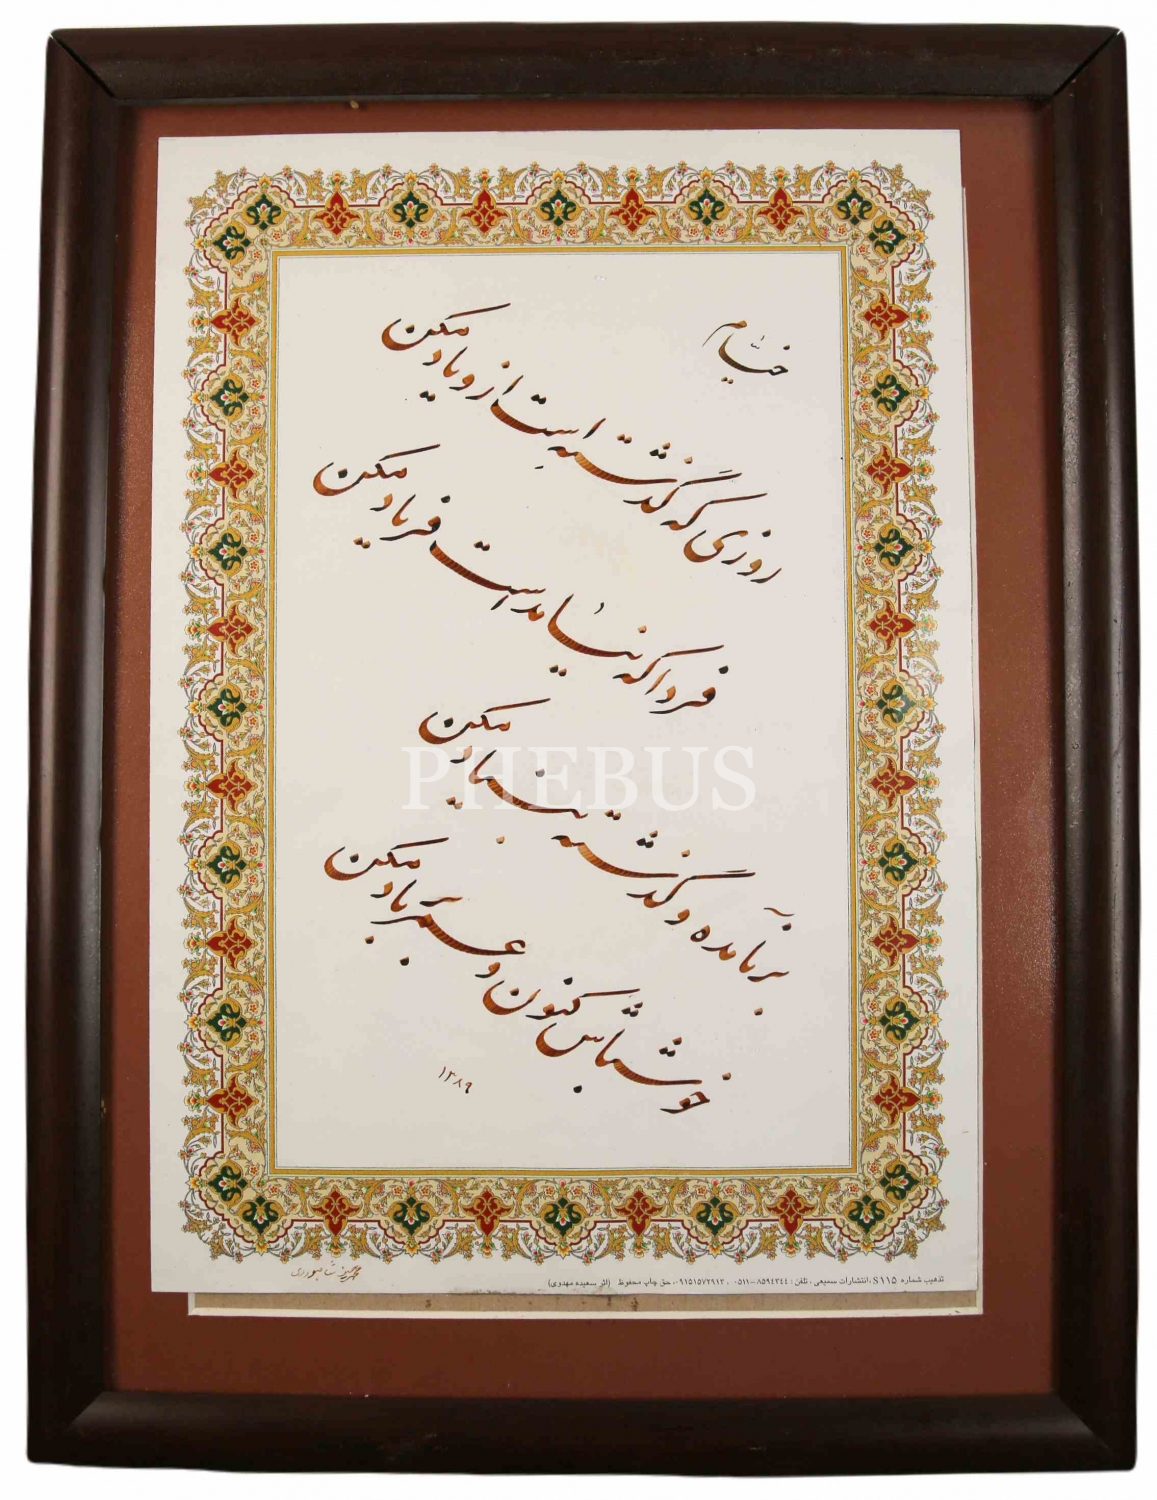 خیّام
روزی که گذشته است ازو یاد مکن
فردا که نیامد است فریاد مکن
بر نآمده و گذشته بنیاد مکن
خوشباش کنون و عمر بر باد مکن
۱۳۸۹
PHEBUS
تذهیب شماره S۱۱۵، انتشارات سمیعی، تلفن: ۸۵۹۴۳۴۴-۰۵۱۱ ، ۰۹۱۵۱۵۷۲۹۱۳، حق چاپ محفوظ (اثر سعیده مهدوی)